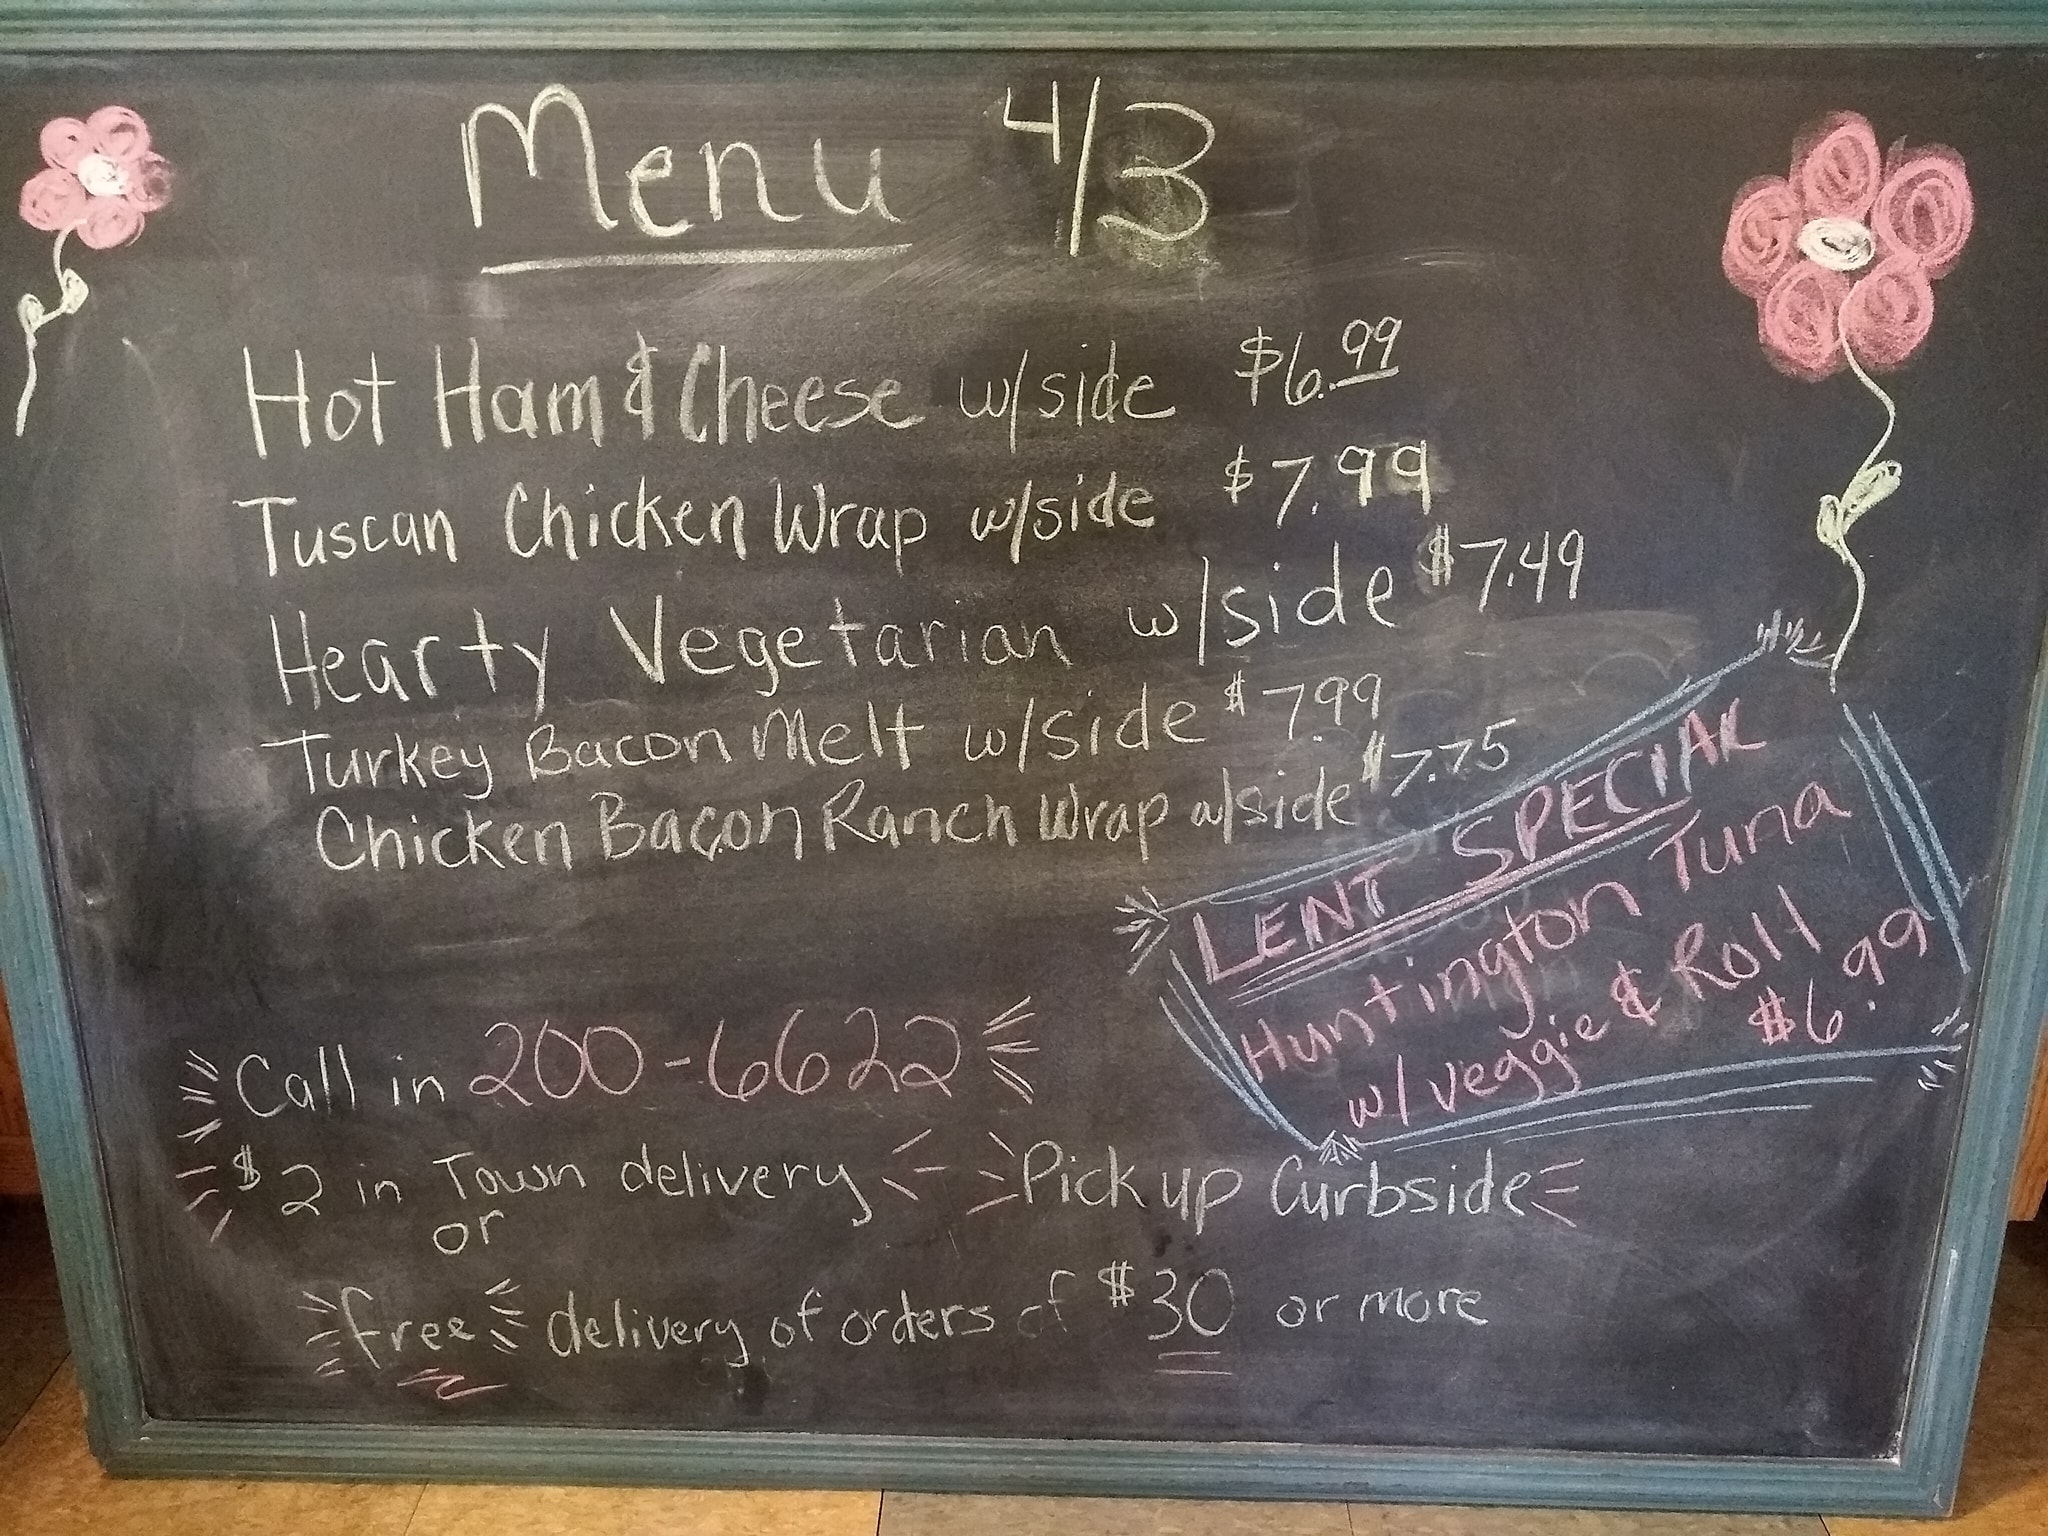 Menu 4/3
Hot Ham & Cheese w/side $6.99
Tuscan Chicken Wrap w/side $7.99
Hearty Vegetarian w/side $7.49
Turkey Bacon Melt w/side $7.99
Chicken Bacon Ranch Wrap w/side $7.75
LENT SPECIAL
Huntington Tuna
w/veggie & Roll
$6.99
Call in 200-6622
$2 in Town delivery Pick up Curbside
or
free delivery of orders of $30 or more